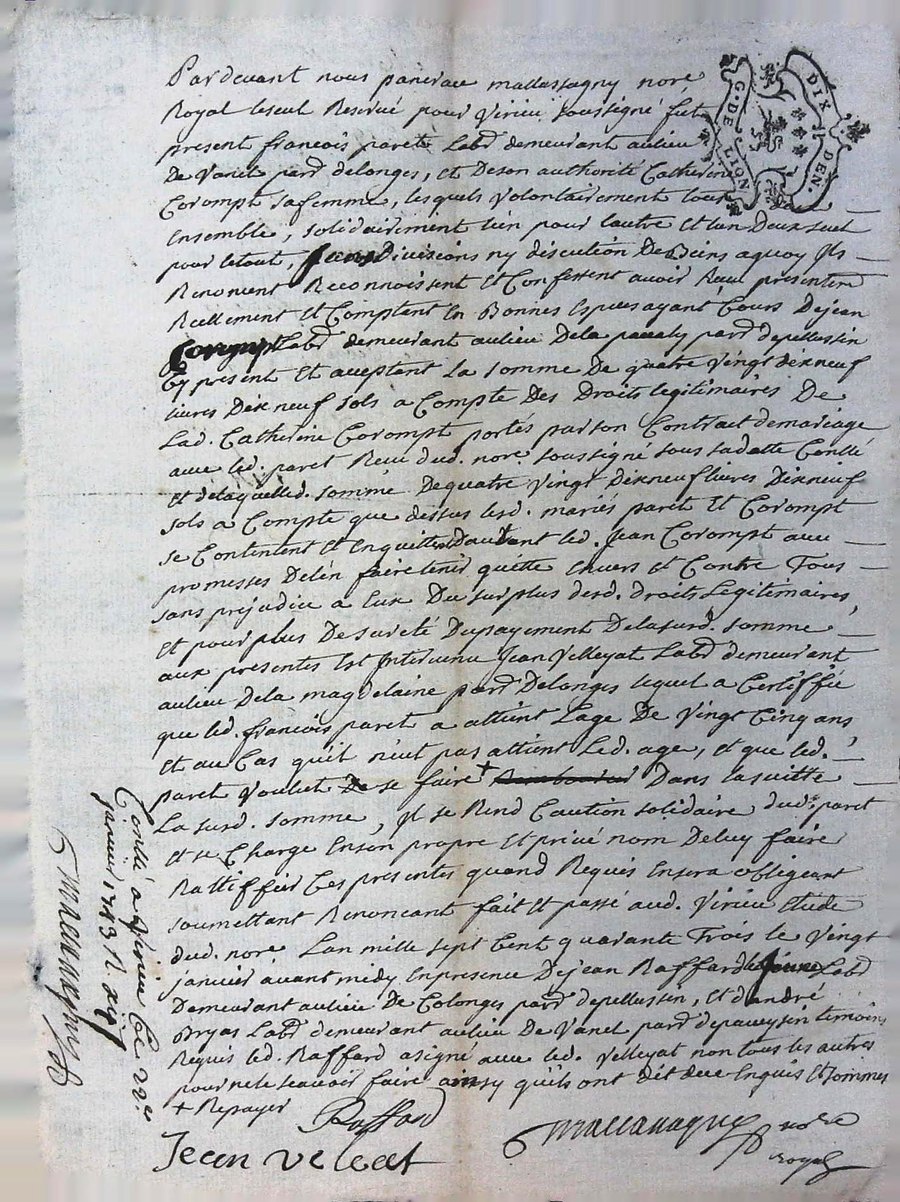 Pardevant nous pancrace mallassagny nore,
Royal leseul Reservé pour Virieu soussigné fut
present francois paret Labr demeurant aulieu
De Vanel parr delonges, et Deson authorité Catherine
Corompt safemme, lesquels volontairement tous
Ensemble, solidairement lun pour lautre et lun Deux seul
pour letout, sans Divisions ny discution De Biens aquoy Ils
Renoncent Reconnoissent Et Confessent avoir Receu presentemt
Reellement Et Comptant En Bonnes Especes ayant Cours Dejean
Corompt Labr demeurant aulieu Dela parr depellussin
Cy present Et acceptant La somme De quatre Vingt Dixneuf
livres Dixneuf sols a Compte Des Droits legitimaires De
Lad. Catherine Corompt portés parson Contract demariage
avec led. paret Receu dud. nore. soussigné sous sadatte Conllé
Et delaquelled. somme Dequatre Vingt Dixneuf livres Dixneuf
sols a Compte que dessus lesd. mariés paret Et Corompt
se Contentent Et Enquittent Dautant led. Jean Corompt avec
promesses Delen faire tenir quitte Envers Et Contre Tous
sans prejudice a Eux Du surplus desd. Droits Legitimaires,
Et pour plus De sureté Dupayement Delasusd. somme
aux presentes Est Intervenu Jean Velleyat Labr demeurant
aulieu Dela magdelaine parr Delonges lequel a Certiffié
que led. francois paret a attient Lage De Vingt Cinq ans
Et au Cas quil n'eut pas attient Led. age, Et que led.
paret Voulut De se faire + Dans lasuitte
La susd. somme, Il se Rend Caution solidaire dud. paret
Et se Charge Enson propre Et privé nom Deluy faire
Rattiffier Ces presentes quand Requis Ensera obligeant
soumettant Renoncant fait Et passé aud. Virieu Etude
dud. nore. Lan mille sept Cent quarante Trois le Vingt
janvier avant midy Enpresence Dejean Raffard lejeune Labr
Demeurant aulieu De Colonges parr depellussin, Et d'andré
Labr demeurant aulieu De Vanel parr temoins
Requis led. Raffard asigné avec led. Velleyat non tous les autres
pour nele scavoir faire ainsy quils ont dit dece Enquis Et sommes
+ Repayer
Raffard
Jean veleat
Mallassagny nore
royal
G. DE LION
DIX DEN.
Conllé a Virieu Ce 22e
janvier 1743 R.